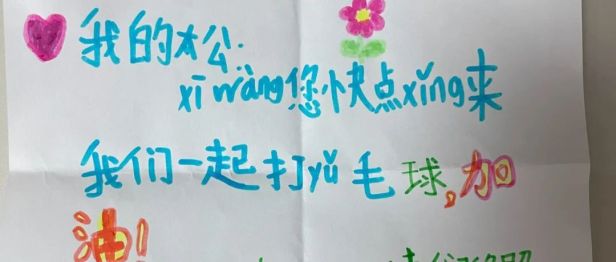 我的木公:
xī wàng您快点xǐng来
我们一起打yǔ毛球,加
油!